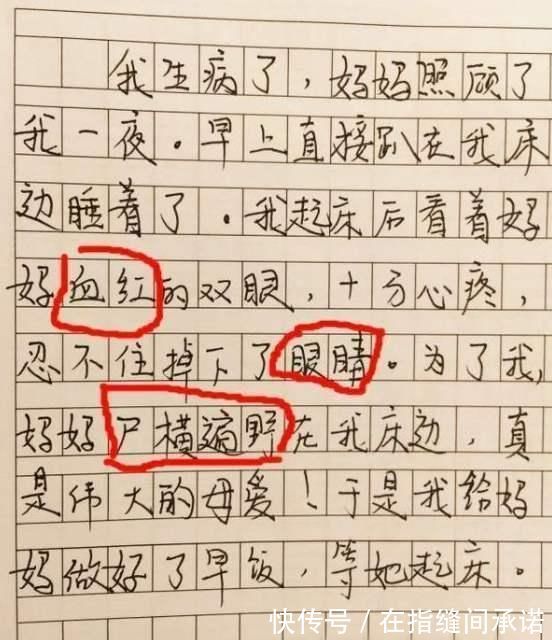 我生病了，妈妈照顾了
我一夜。早上直接趴在我床
边睡着了。我起床后看着妈
妈血红的双眼，十分心疼，
忍不住掉下了眼睛。为了我，
妈妈尸横遍野在我床边，真
是伟大的母爱！于是我给妈
妈做好了早饭，等她起床。
快传号/在指缝间承诺